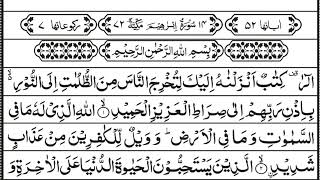 اٰیاتہا ۵۲ ۱۴ سُوْرَةُ اِبْرٰهِيْمَ مَكِّيَّةٌ ۷۲ رکوعاتہا ۷
بِسْمِ اللّٰهِ الرَّحْمٰنِ الرَّحِيْمِ
الٓرٰ ۫ كِتٰبٌ اَنْزَلْنٰهُ اِلَيْكَ لِتُخْرِجَ النَّاسَ مِنَ الظُّلُمٰتِ اِلَى النُّوْرِ ۙ۬
بِاِذْنِ رَبِّهِمْ اِلٰى صِرَاطِ الْعَزِيْزِ الْحَمِيْدِ ۙ اللّٰهِ الَّذِيْ لَهٗ مَا فِي
السَّمٰوٰتِ وَمَا فِي الْاَرْضِ ؕ وَ وَيْلٌ لِّلْكٰفِرِيْنَ مِنْ عَذَابٍ
شَدِيْدِ ۙ الَّذِيْنَ يَسْتَحِبُّوْنَ الْحَيٰوةَ الدُّنْيَا عَلَى الْاٰخِرَةِ وَ